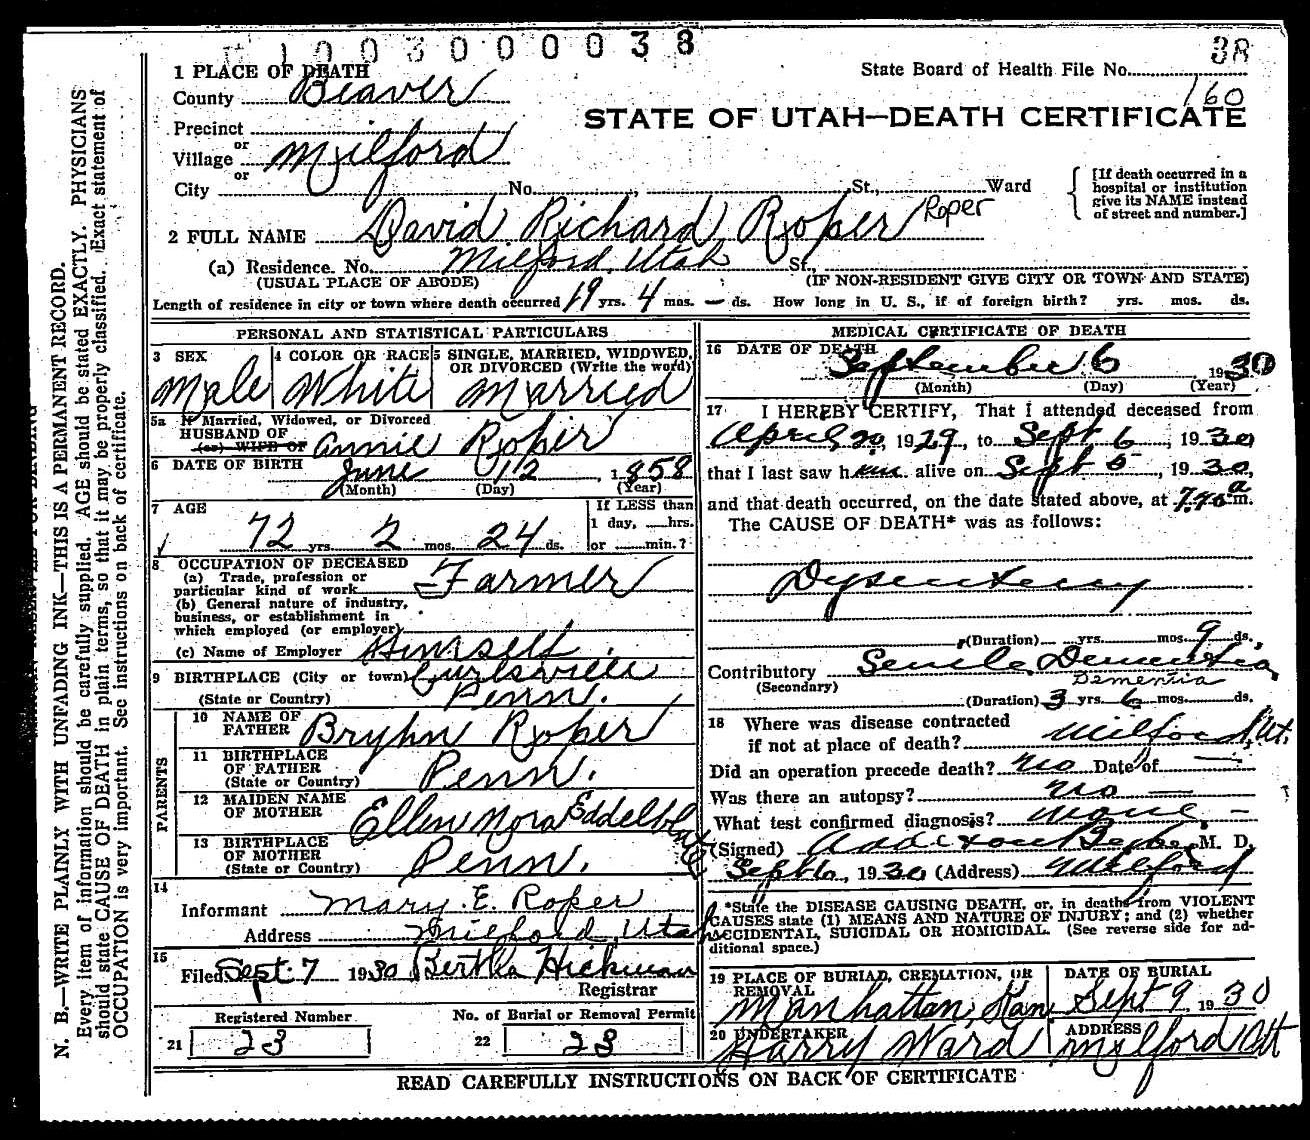 1003000038
38
1 PLACE OF DEATH
State Board of Health File No.
County Beaver
160
STATE OF UTAH—DEATH CERTIFICATE
Precinct
or
Village Milford
or
City No. , St., Ward
[If death occurred in a
hospital or institution
give its NAME instead
of street and number.]
2 FULL NAME David Richard Roper Roper
(a) Residence. No. Milford, Utah St.,
(USUAL PLACE OF ABODE) (IF NON-RESIDENT GIVE CITY OR TOWN AND STATE)
Length of residence in city or town where death occurred 19 yrs. 4 mos. — ds. How long in U. S., if of foreign birth? yrs. mos. ds.
PERSONAL AND STATISTICAL PARTICULARS
3 SEX 4 COLOR OR RACE 5 SINGLE, MARRIED, WIDOWED,
OR DIVORCED (Write the word)
Male White Married
5a If Married, Widowed, or Divorced
HUSBAND OF
(or) WIFE OF Annie Roper
6 DATE OF BIRTH June 12, 1858
(Month) (Day) (Year)
7 AGE
If LESS than
1 day, hrs.
72 yrs 2 mos. 24 ds. or min.?
8 OCCUPATION OF DECEASED
(a) Trade, profession or
particular kind of work Farmer
(b) General nature of industry,
business, or establishment in
which employed (or employer)
(c) Name of Employer Himself
9 BIRTHPLACE (City or town) Curlsville
(State or Country) Penn.
PARENTS
10 NAME OF
FATHER Bryhn Roper
11 BIRTHPLACE
OF FATHER
(State or Country) Penn.
12 MAIDEN NAME
OF MOTHER Ellen Nora
13 BIRTHPLACE
OF MOTHER
(State or Country) Penn.
14
Informant Mary E. Roper
Address Milford, Utah
15
Filed Sept. 7 1930 Bertha Hickman
Registrar
Registered Number No. of Burial or Removal Permit
21 23 22 23
MEDICAL CERTIFICATE OF DEATH
16 DATE OF DEATH
September 6 1930
(Month) (Day) (Year)
17 I HEREBY CERTIFY, That I attended deceased from
April 20, 1929, to Sept 6, 1930
that I last saw him alive on Sept 5, 1930,
and that death occurred, on the date stated above, at 7.40 a m.
The CAUSE OF DEATH* was as follows:
Dysentery
(Duration) yrs. mos. 9 ds.
Contributory Senile Dementia
(Secondary) Dementia
(Duration) 3 yrs. 6 mos. ds.
18 Where was disease contracted
if not at place of death? Milford, Ut.
Did an operation precede death? No Date of —
Was there an autopsy? No —
What test confirmed diagnosis? None. —
(Signed) M. D.
Sept 6, 1930 (Address) Milford
*State the DISEASE CAUSING DEATH, or, in deaths from VIOLENT
CAUSES state (1) MEANS AND NATURE OF INJURY; and (2) whether
ACCIDENTAL, SUICIDAL OR HOMICIDAL. (See reverse side for ad-
ditional space.)
19 PLACE OF BURIAL, CREMATION, OR
REMOVAL
DATE OF BURIAL
Manhattan, Kan Sept 9, 1930
20 UNDERTAKER ADDRESS
Harry Ward Milford Ut
READ CAREFULLY INSTRUCTIONS ON BACK OF CERTIFICATE
N. B.—WRITE PLAINLY WITH UNFADING INK—THIS IS A PERMANENT RECORD.
Every item of information should be carefully supplied. AGE should be stated EXACTLY. PHYSICIANS
should state CAUSE OF DEATH in plain terms, so that it may be properly classified. Exact statement of
OCCUPATION is very important. See instructions on back of certificate.